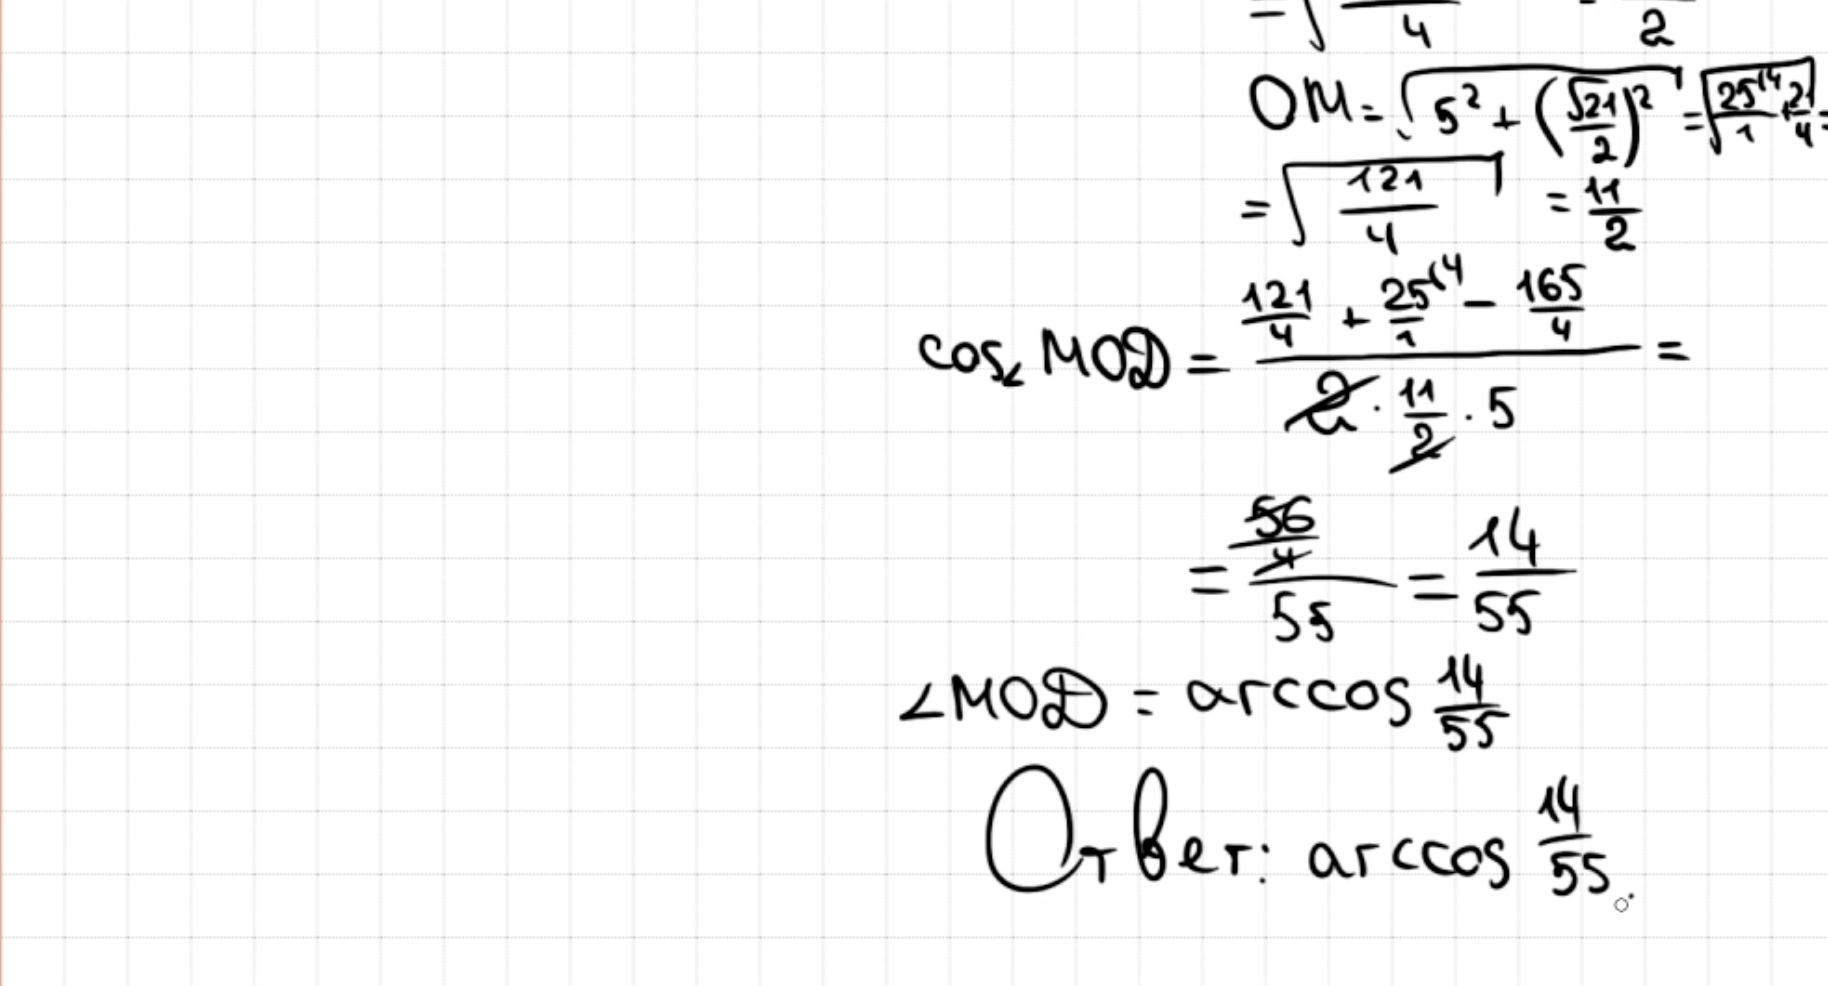 = √ 4 = 2
OM = √(5² + (√21/2)²) = √(25^(4/1 + 21/4) =
= √(121/4) = 11/2
cos∠MOD = (121/4 + 25^(4/1 - 165/4) / (2 · 11/2 · 5) =
= (56/4)/55 = 14/55
∠MOD = arccos 14/55
Ответ: arccos 14/55.